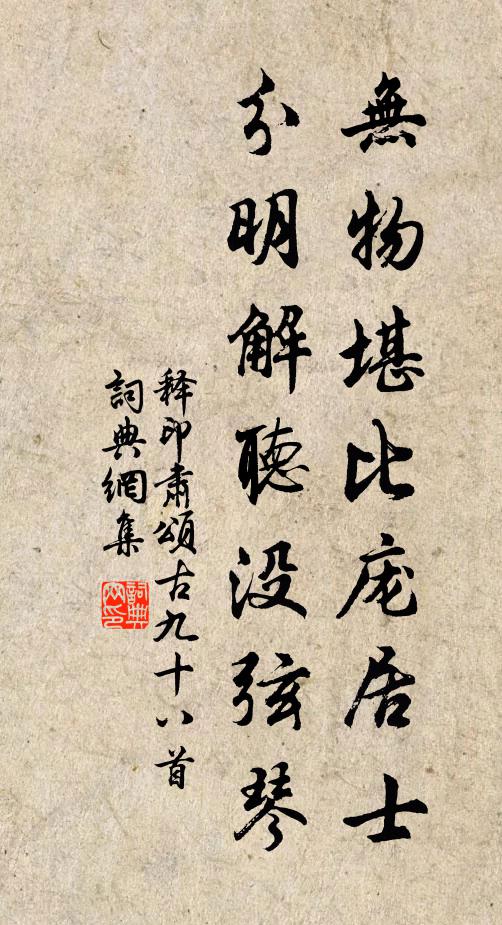 無物堪比庞居士
分明解聽没弦琴
释印肅頌古九十八首
詞典網集
詞典网印